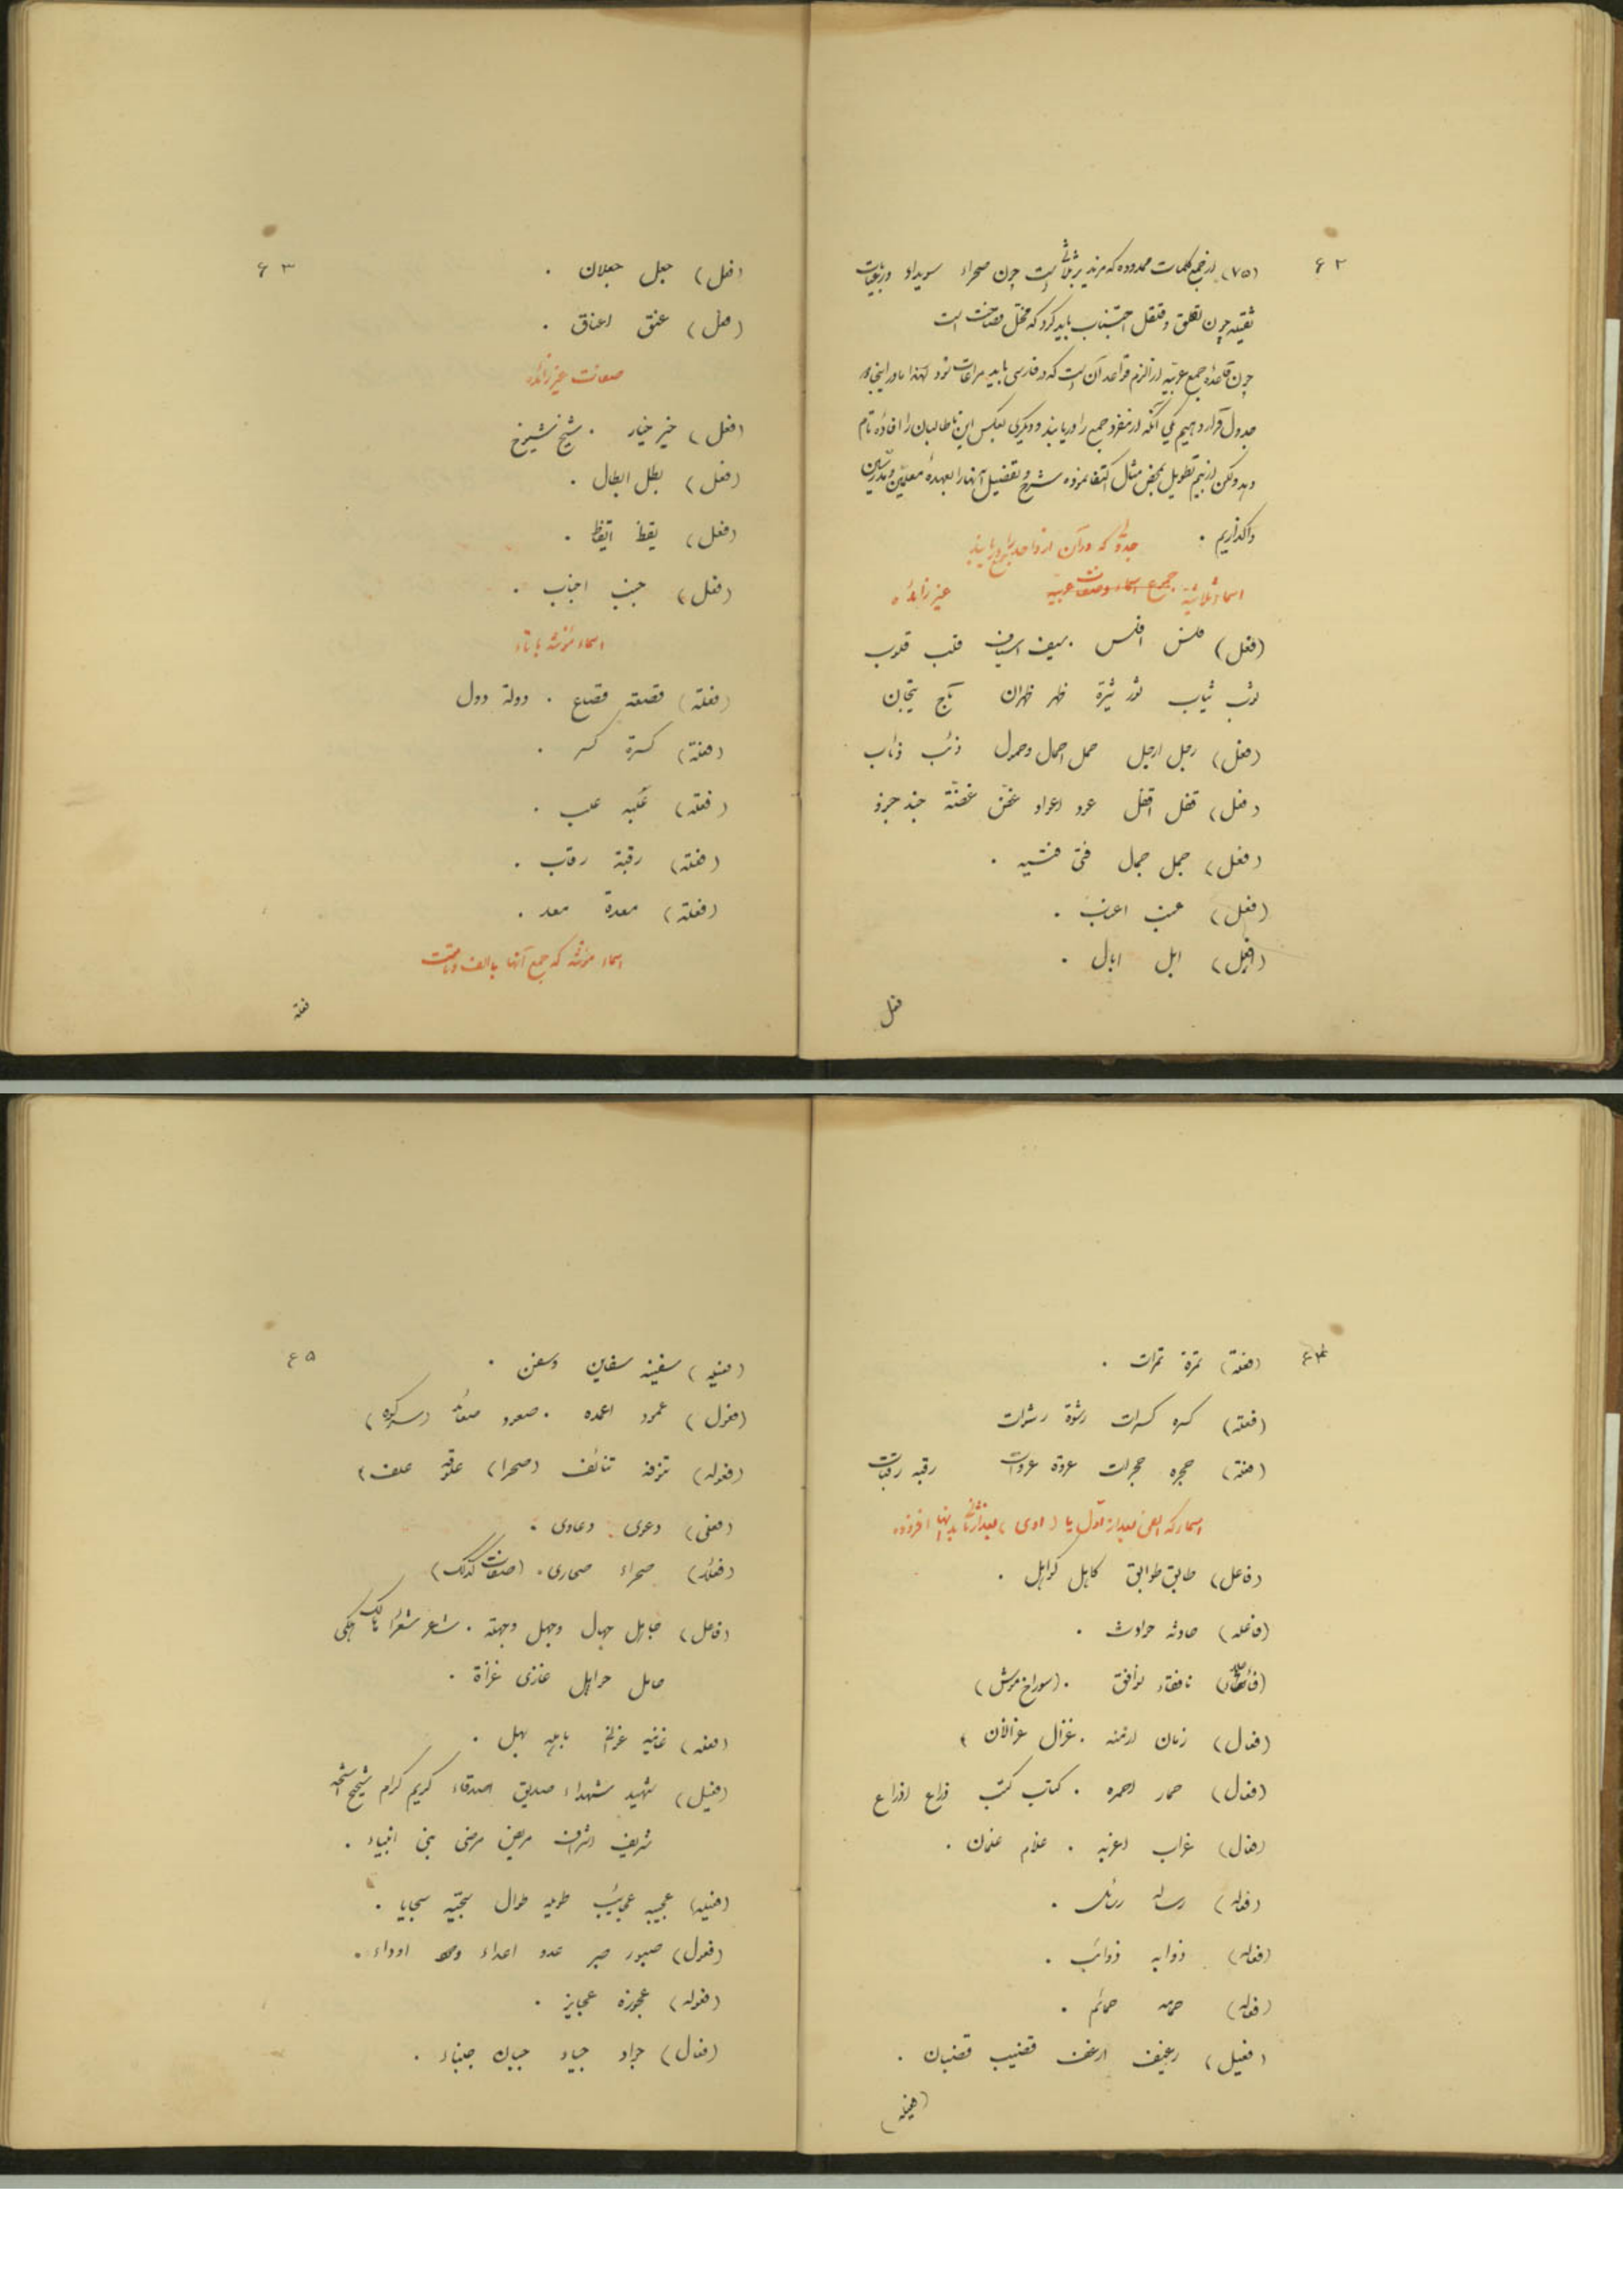 ۶۲
(۷۵) از جمع کلمات ممدوده که مزید بر ثلاثی است چون صحراء سویداء و رباعیات
ثقیله چون لقلق و فلفل اجتناب باید کرد که مخل فصاحت است
چون قاعدهٔ جمع عربیه از الزم قواعد آن است که در فارسی باید مراعات شود لهذا ما در اینجا دو
جدول قرار دهیم یکی آنکه از مفرد جمع را دریابند و دیگری بعکس این تا طالبان را افادهٔ تام
دهد ولکن از بیم تطویل بمحض مثال اکتفا نموده شرح و تفصیل آنها را بعهدهٔ معلمین و مدرسین
واگذاریم .
جدولی که در آن از واحد جمع را دریابند
اسماء ثلاثیه جموع اسماء و صفات عربیه غیر زائده
(فعل) فلس افلس . سیف اسیاف قلب قلوب
ثوب ثیاب ثور ثیرة ظهر ظهران تاج تیجان
(فعل) رجل ارجل حمل احمال و حمول ذئب ذئاب
(فعل) قفل اقفل عود اعواد غصن غصنة جند جنود
(فعل) جمل جمال فتی فتیه .
(فعل) عنب اعناب .
(فعل) ابل ابال .
فعل
۶۳
(فعل) جعل جعلان .
(فعل) عنق اعناق .
صفات غیر زائده
(فعل) خیر خیار . شیخ شیوخ
(فعل) بطل ابطال .
(فعل) یقظ ایقاظ .
(فعل) جنب اجناب .
اسماء مؤنثه با تاء
(فعلة) قصعة قصاع . دولة دول
(فعلة) کسرة کسر .
(فعلة) علبه علب .
(فعلة) رقبة رقاب .
(فعلة) معدة معد .
اسماء مؤنثه که جمع آنها بالف و تاست
فعلة
۶۴
(فعلة) تمرة تمرات .
(فعلة) کسره کسرات رشوة رشوات
(فعلة) حجره حجرات عروة عروات رقبه رقبات
(فاعل) طابق طوابق کاهل کواهل .
(فاعله) حادثه حوادث .
نافقاء نوافق . (سوراخ موش)
(فعال) زمان ازمنه . غزال غزلان
(فعال) حمار احمره . کتاب کتب ذراع اذراع
(فعال) غراب اغربه . غلام غلمان .
(فعاله) رساله رسائل .
(فعاله) ذوابه ذوائب .
(فعاله) حمامه حمائم .
(فعیل) رغیف ارغفه قضیب قضبان .
(فعیله)
۶۵
(فعیله) سفینه سفاین و سفن .
(فعول) عمود اعمده . صعود صعائد (سر کوه)
(فعوله) تنوفه تنائف (صحرا) علوفه علف
(فعلی) دعوی دعاوی .
(فعلاء) صحراء صحاری . (صفات کذلک)
(فاعل) جاهل جهال و جهل و جهله . شاعر شعراء هالک هلکی
حامل حوامل غازی غزاة .
(فاعله) غانیه غوانی باهله بهل .
(فعیل) شهید شهداء صدیق اصدقاء کریم کرام شحیح اشحه
شریف اشراف مریض مرضی نبی انبیاء .
(فعیله) عجیبه عجائب طویله طوال سجیه سجایا .
(فعول) صبور صبر عدو اعداء ودود اوداء .
(فعوله) عجوزه عجایز .
(فعال) جواد جیاد جبان جبناء .